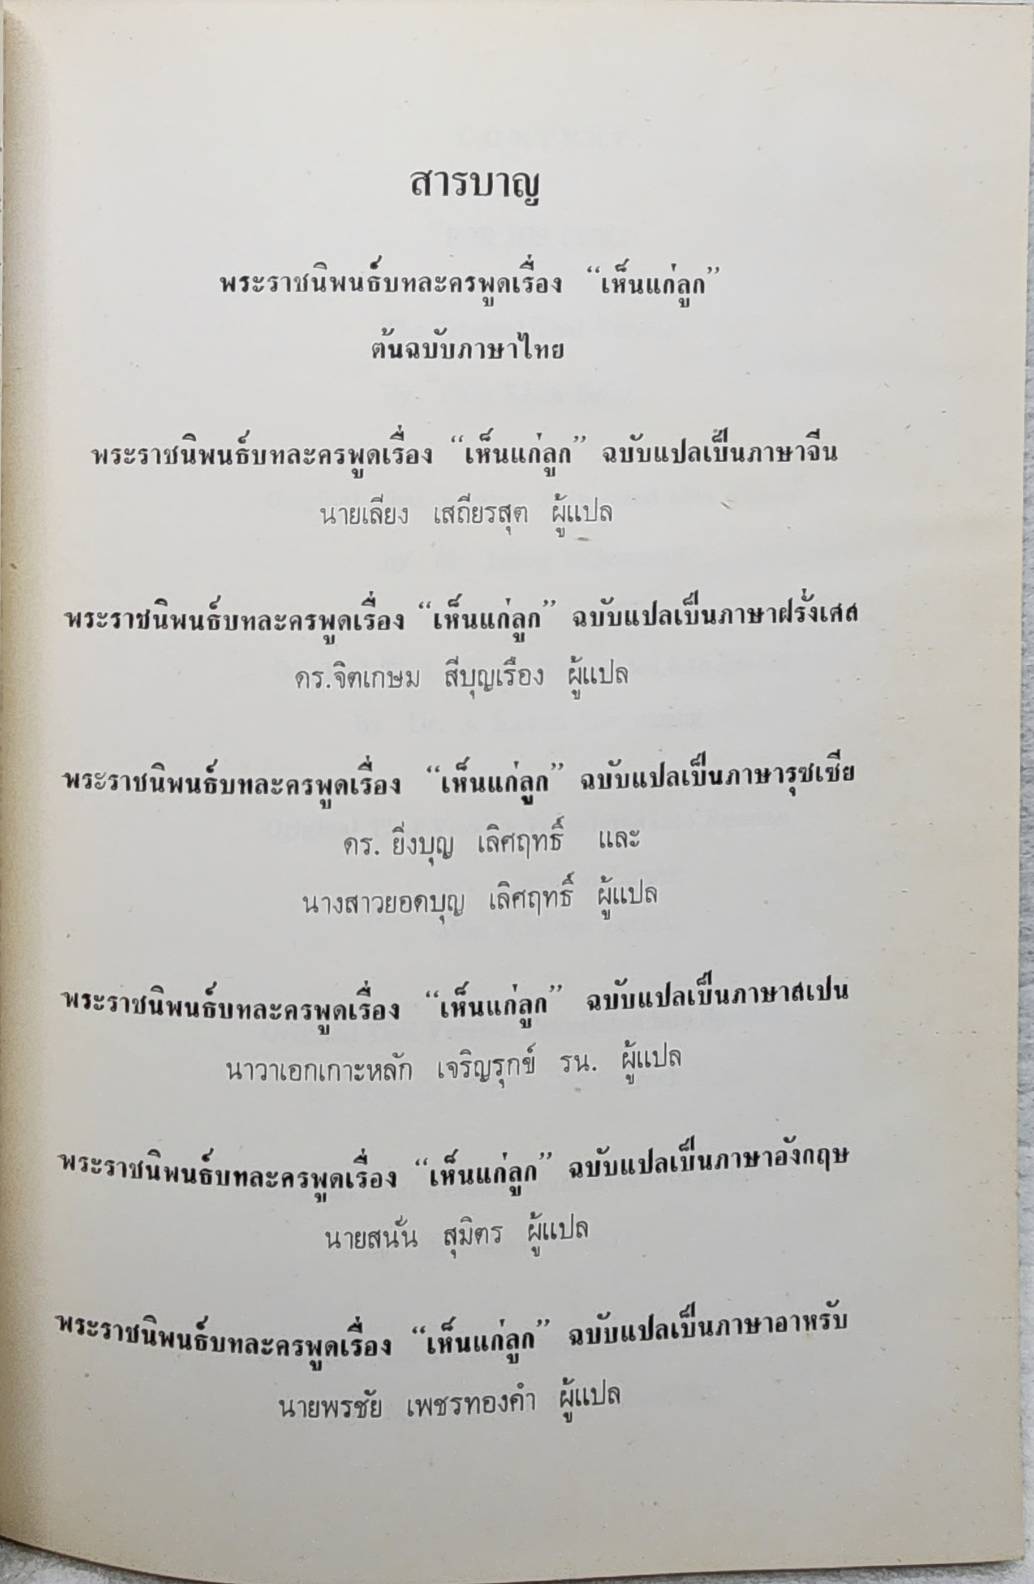 สารบาญ
พระราชนิพนธ์บทละครพูดเรื่อง “เห็นแก่ลูก”
ต้นฉบับภาษาไทย
พระราชนิพนธ์บทละครพูดเรื่อง “เห็นแก่ลูก” ฉบับแปลเป็นภาษาจีน
นายเลียง เสถียรสุต ผู้แปล
พระราชนิพนธ์บทละครพูดเรื่อง “เห็นแก่ลูก” ฉบับแปลเป็นภาษาฝรั่งเศส
ดร.จิตเกษม สีบุญเรือง ผู้แปล
พระราชนิพนธ์บทละครพูดเรื่อง “เห็นแก่ลูก” ฉบับแปลเป็นภาษารุซเซีย
ดร. ยิ่งบุญ เลิศฤทธิ์ และ
นางสาวยอดบุญ เลิศฤทธิ์ ผู้แปล
พระราชนิพนธ์บทละครพูดเรื่อง “เห็นแก่ลูก” ฉบับแปลเป็นภาษาสเปน
นาวาเอกเกาะหลัก เจริญรุกข์ รน. ผู้แปล
พระราชนิพนธ์บทละครพูดเรื่อง “เห็นแก่ลูก” ฉบับแปลเป็นภาษาอังกฤษ
นายสนั่น สุมิตร ผู้แปล
พระราชนิพนธ์บทละครพูดเรื่อง “เห็นแก่ลูก” ฉบับแปลเป็นภาษาอาหรับ
นายพรชัย เพชรทองคำ ผู้แปล